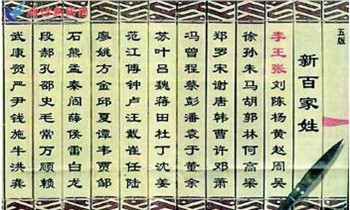 五版
新百家姓
李王张刘陈杨黄赵周吴
徐孙朱马胡郭林何高梁
郑罗宋谢唐韩曹许邓萧
冯曾程蔡彭潘袁于董余
苏叶吕魏蒋田杜丁沈姜
范江傅钟卢汪戴崔任陆
廖姚方金邱夏谭韦贾邹
石熊孟秦阎薛侯雷白龙
段郝孔邵史毛常万顾赖
武康贺严尹钱施牛洪龚